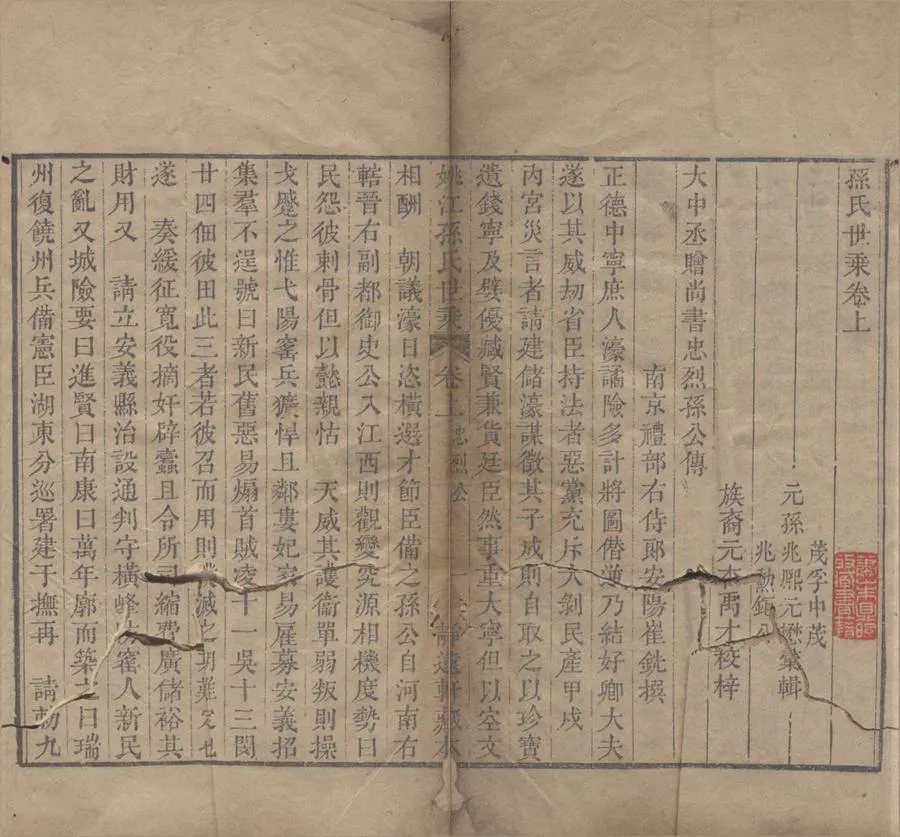 孫氏世乘卷上
茂孚中茂
元孫兆熙元懋彙輯
兆勲鉅
族裔元杰禹才校梓
大中丞贈尚書忠烈孫公傳
南京禮部右侍郎安陽崔銑撰
正德中寧庶人濠譎險多計將圖僭逆乃結好卿大夫
遂以其威劫省臣持法者惡黨充斥大剝民產甲戌
內宮災言者請建儲濠謀徵其子成則自取之以珍寶
遺錢寧及嬖優臧賢兼貨廷臣然事重大寧但以空文
姚江孫氏世乘 卷上 忠烈公 一 靜遠軒藏本
相酬 朝議濠日恣橫選才節臣備之孫公自河南右
轄晉右副都御史公入江西則觀變究源相機度勢曰
民怨彼剌骨但以懿親怙 天威其護衞單弱叛則操
戈蹙之惟弋陽窑兵獷悍且鄰婁妃家易雇募安義招
集羣不逞號曰新民舊惡易煽首賊凌十一吳十三閔
廿四佃彼田此三者若彼召而用則滅之胡難定也
遂 奏緩征寬役摘奸辟蠹且令所司縮費廣儲裕其
財用又 請立安義縣治設通判守橫峰窑人新民
之亂又城險要曰進賢曰南康曰萬年廓而築之曰瑞
州復饒州兵備憲臣湖東分巡署建于撫再 請勑九